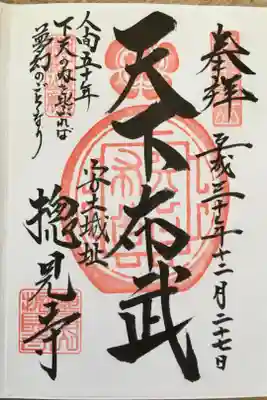 奉拝
平成二十三年十二月二十七日
天下布武
安土城址
摠見寺
人間五十年
下天の内を比ぶれば
夢幻のごとくなり